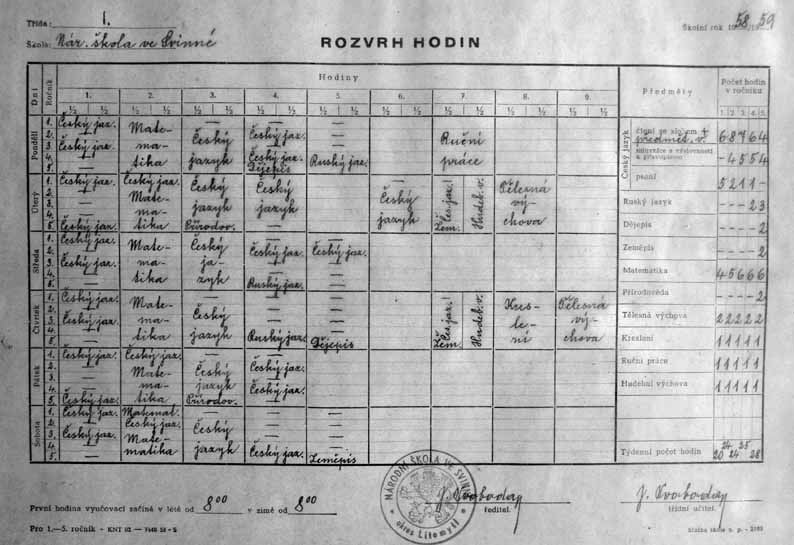 Třída: I.
Škola: Nár. škola ve Svinné
ROZVRH HODIN
Školní rok 1958/1959
Dni Ročník Hodiny Předměty Počet hodin v ročníku
1. 2. 3. 4. 5. 6. 7. 8. 9.
½ ½ ½ ½ ½ ½ ½ ½ ½ ½ ½ ½ ½ ½ ½ ½ ½ ½
1. 2. 3. 4. 5.
Pondělí
1. Český jaz. Mate- — —
2. — ma- Český Český jaz. Ruční
3. Český jaz. tika jazyk — práce
4. — Český jaz.
5. Dějepis Ruský jaz.
Úterý
1. Český jaz. Český jaz. Český Český Český Čes. jaz. Hudeb. v. Tělesná
2. — Mate- jazyk jazyk jazyk vý-
3. — ma- chova
4. — tika
5. Český jaz. Přírodov. Zem.
Středa
1. Český jaz. Mate- Český — —
2. — ma- ja- Český jaz. Český jaz.
3. Český jaz. tika zyk — —
4. —
5. — Ruský jaz.
Čtvrtek
1. Český jaz. Mate- — — — Čes. jaz. Hudeb. v. Kres- Tělesná
2. — ma- Český — — le- vý-
3. Český jaz. tika jazyk — — ní chova
4. —
5. — Ruský jaz. Dějepis Zem.
Pátek
1. Český jaz. Český jaz. — —
2. — Mate- Český Český jaz.
3. — ma- jazyk —
4. — tika Český jaz.
5. Český jaz. Přírodov.
Sobota
1. Český jaz. Matemat. — — —
2. — Český jaz. Český — —
3. Český jaz. Mate- jazyk — —
4. — matika
5. — Český jaz. Zeměpis
Český jazyk
čtení se slohem
předmět. v. 6 8 7 6 4
mluvnice s výslovností
a pravopisem - 4 5 5 4
psaní 5 2 1 1 -
Ruský jazyk - - - 2 3
Dějepis - - - - 2
Zeměpis - - - - 2
Matematika 4 5 6 6 6
Přírodověda - - - - 2
Tělesná výchova 2 2 2 2 2
Kreslení 1 1 1 1 1
Ruční práce 1 1 1 1 1
Hudební výchova 1 1 1 1 1
Týdenní počet hodin 20 24 24 25 28
První hodina vyučovací začíná v létě od 8⁰⁰ v zimě od 8⁰⁰
NÁRODNÍ ŠKOLA VE SVINNÉ
okres Litomyšl
J. Svoboda
ředitel.
J. Svoboda
třídní učitel.
Pro 1.—5. ročník - KNT 02 —
Služba škole n. p. -